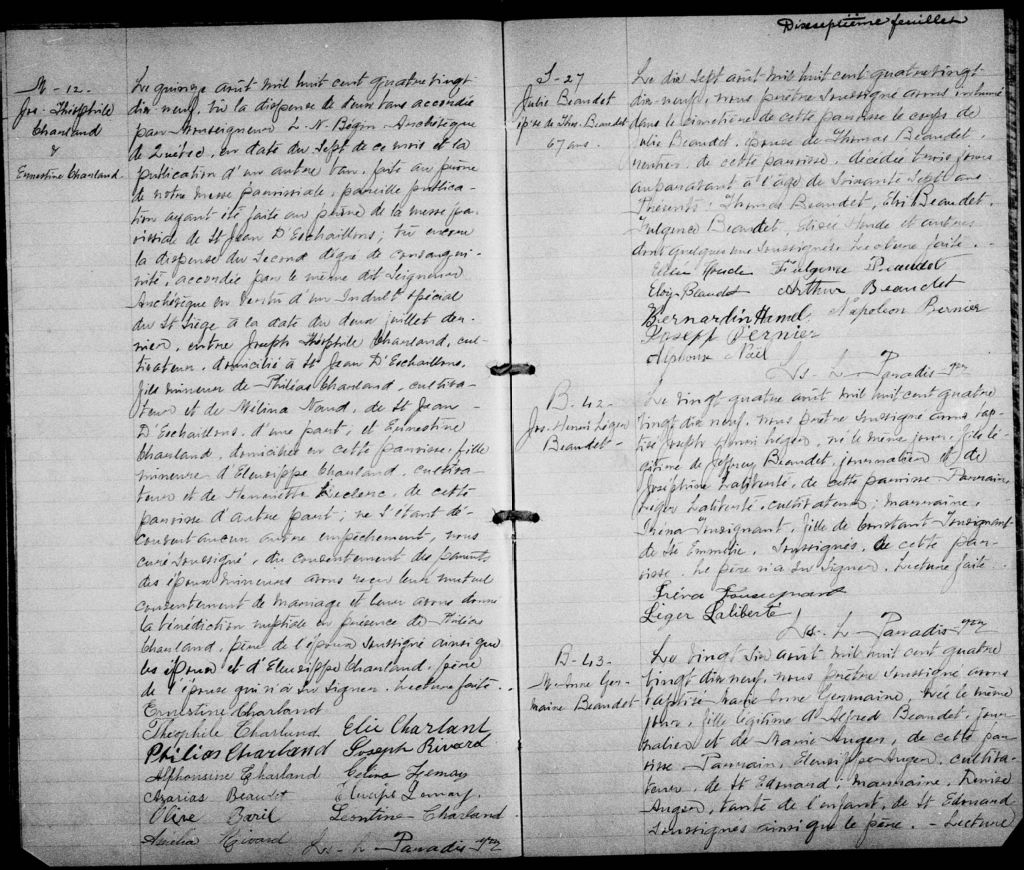 M - 12 -
Jos. Théophile
Charland
&
Ernestine Charland
Le quinze août mil huit cent quatre vingt
dix neuf, vu la dispense de deux bans accordée
par Monseigneur L. N. Bégin Archevêque
de Québec, en date du sept de ce mois et la
publication d'un autre ban, faite au prône
de notre messe paroissiale, pareille publica-
tion ayant été faite au prône de la messe pa-
roissiale de St Jean D'Eschaillons; vu encore
la dispense du second degré de consangui-
nité, accordée par le même dit Seigneur
Archevêque en vertu d'un Indult spécial
du St Siège à la date du deux juillet der-
nier, entre Joseph Théophile Charland, cul-
tivateur, domicilié à St Jean D'Eschaillons,
fils mineur de Philéas Charland, cultiva-
teur et de Mélina Naud, de St Jean
D'Eschaillons, d'une part; et Ernestine
Charland, domiciliée en cette paroisse, fille
mineure d'Eleusippe Charland, cultiva-
teur et de Henriette Leclerc, de cette
paroisse d'autre part; ne s'étant dé-
couvert aucun autre empêchement, nous
curé soussigné, du consentement des parents
des époux mineurs avons reçu leur mutuel
consentement de mariage et leur avons donné
la bénédiction nuptiale en présence de Philéas
Charland, père de l'époux soussigné ainsi que
les époux et d'Eleusippe Charland, père
de l'épouse qui n'a su signer. Lecture faite.
Ernestine Charland
Théophile Charland Elie Charland
Philias Charland Joseph Rivard
Alphonsine Charland Celina Lemay
Azarias Beaudet Elusipe Lemay
Olive Baril Leontine Charland
Amelia Rivard Ls. L. Paradis Ptre
Dixseptième feuillet
S - 27
Julie Beaudet
épse de Thos. Beaudet
67 ans.
Le dix sept août mil huit cent quatre vingt
dix neuf, nous prêtre soussigné avons inhumé
dans le cimetière de cette paroisse le corps de
Julie Beaudet, épouse de Thomas Beaudet,
rentier, de cette paroisse, décédée trois jours
auparavant à l'âge de soixante sept ans
Présents: Thomas Beaudet, Elri Beaudet,
Fulgence Beaudet, Elisée Houde et autres
dont quelques uns soussignés. Lecture faite.
Elisée Houde Fulgence Beaudet
Eloi Beaudet Arthur Beaudet
Bernardin Hamel Napoleon Bernier
Joseph Bernier
Alphonse Noël
Ls. L. Paradis Ptre
B - 42 -
Jos. Henri Léger
Beaudet -
Le vingt quatre août mil huit cent quatre
vingt dix neuf, nous prêtre soussigné avons bap-
tisé Joseph Henri Léger, né le même jour, fils lé-
gitime de Jeffrey Beaudet, journalier et de
Joséphine Laliberté, de cette paroisse. Parrain,
Léger Laliberté, cultivateur; marraine,
Iréna Tousignant, fille de Constant Tousignant
de Ste Emmélie, soussignés, de cette pa-
roisse. Le père n'a su signer. Lecture faite
Iréna Tousignant
Léger Laliberté
Ls. L. Paradis Ptre
B - 43 -
M. Anne Ger-
maine Beaudet
Le vingt six août mil huit cent quatre
vingt dix neuf, nous prêtre soussigné avons
baptisé Marie Anne Germaine, née le même
jour, fille légitime d'Alfred Beaudet, jour-
nalier et de Marie Auger, de cette pa-
roisse. Parrain, Eleusippe Auger, cultiva-
teur, de St Edmond; marraine, Denise
Auger, tante de l'enfant, de St Edmond
soussignés ainsi que le père. - Lecture